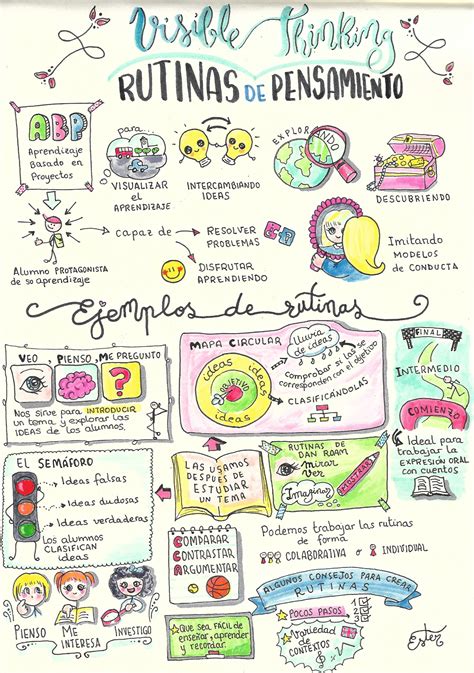 Visible Thinking
RUTINAS DE PENSAMIENTO
ABP
Aprendizaje
Basado en
Proyectos
para...
VISUALIZAR
el
APRENDIZAJE
INTERCAMBIANDO
IDEAS
EXPLORANDO
DESCUBRIENDO
Alumno PROTAGONISTA
de so aprendizaje
capaz de
RESOLVER
PROBLEMAS
DISFRUTAR
APRENDIENDO
Imitando
MODELOS
DE CONDUCTA
Ejemplos de rutinas
VEO, PIENSO, ME PREGUNTO
?
Nos sirve para INTRODUCIR
un tema y explorar las
IDEAS de los alumnos.
MAPA CIRCULAR
Lluvia
de ideas
ideas
ideas
ideas
ideas
OBJETIVO
Comprobar si las
corresponden con el objetivo
CLASIFICÁNDOLAS
FINAL
INTERMEDIO
COMIENZO
Ideal para
trabajar la
EXPRESIÓN ORAL
con cuentos
EL SEMÁFORO
Ideas falsas
Ideas dudosas
Ideas verdaderas
Los alumnos
CLASIFICAN
ideas
LAS USAMOS
DESPUÉS DE
ESTUDIAR
UN TEMA
RUTINAS DE
DAN ROAM
mirar
ver
Imaginar
MOSTRAR
COMPARAR
CONTRASTAR
ARGUMENTAR
Podemos trabajar las rutinas
de forma
COLABORATIVA o INDIVIDUAL
PIENSO
ME
INTERESA
INVESTIGO
ALGUNOS CONSEJOS PARA CREAR
RUTINAS
POCOS PASOS
1
2
3
Variedad
de
CONTEXTOS
Que sea FÁCIL DE
enseñar, aprender
y recordar.
Ester